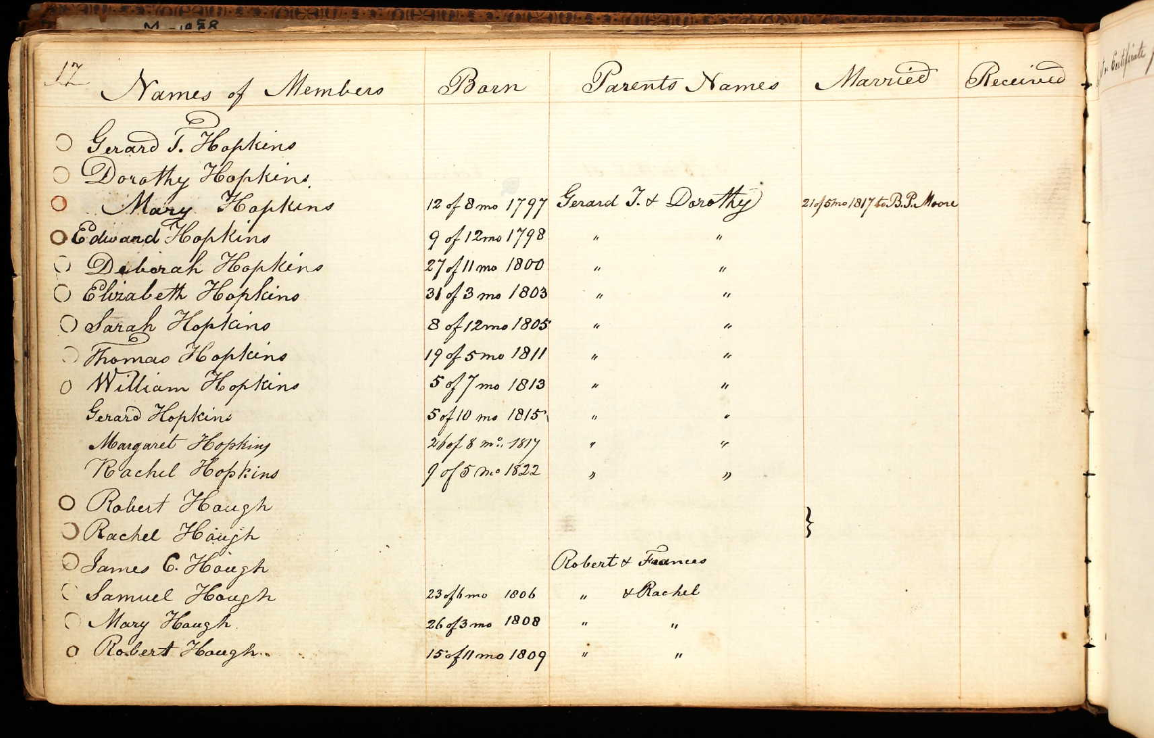 17 Names of Members Born Parents Names Married Received
Gerard T. Hopkins
Dorothy Hopkins
Mary Hopkins 12 of 8 mo 1797 Gerard T. & Dorothy 21 of 5 mo 1817 to B.P. Moore
Edward Hopkins 9 of 12 mo 1798 " "
Deborah Hopkins 27 of 11 mo 1800 " "
Elizabeth Hopkins 31 of 3 mo 1803 " "
Sarah Hopkins 8 of 12 mo 1805 " "
Thomas Hopkins 19 of 5 mo 1811 " "
William Hopkins 5 of 7 mo 1813 " "
Gerard Hopkins 5 of 10 mo 1815 " "
Margaret Hopkins 26 of 8 mo. 1817 " "
Rachel Hopkins 9 of 5 mo 1822 " "
Robert Hough
Rachel Hough
James C. Hough Robert & Frances
Samuel Hough 23 of 6 mo 1806 " & Rachel
Mary Hough 26 of 3 mo 1808 " "
Robert Hough 15 of 11 mo 1809 " "
Certificate